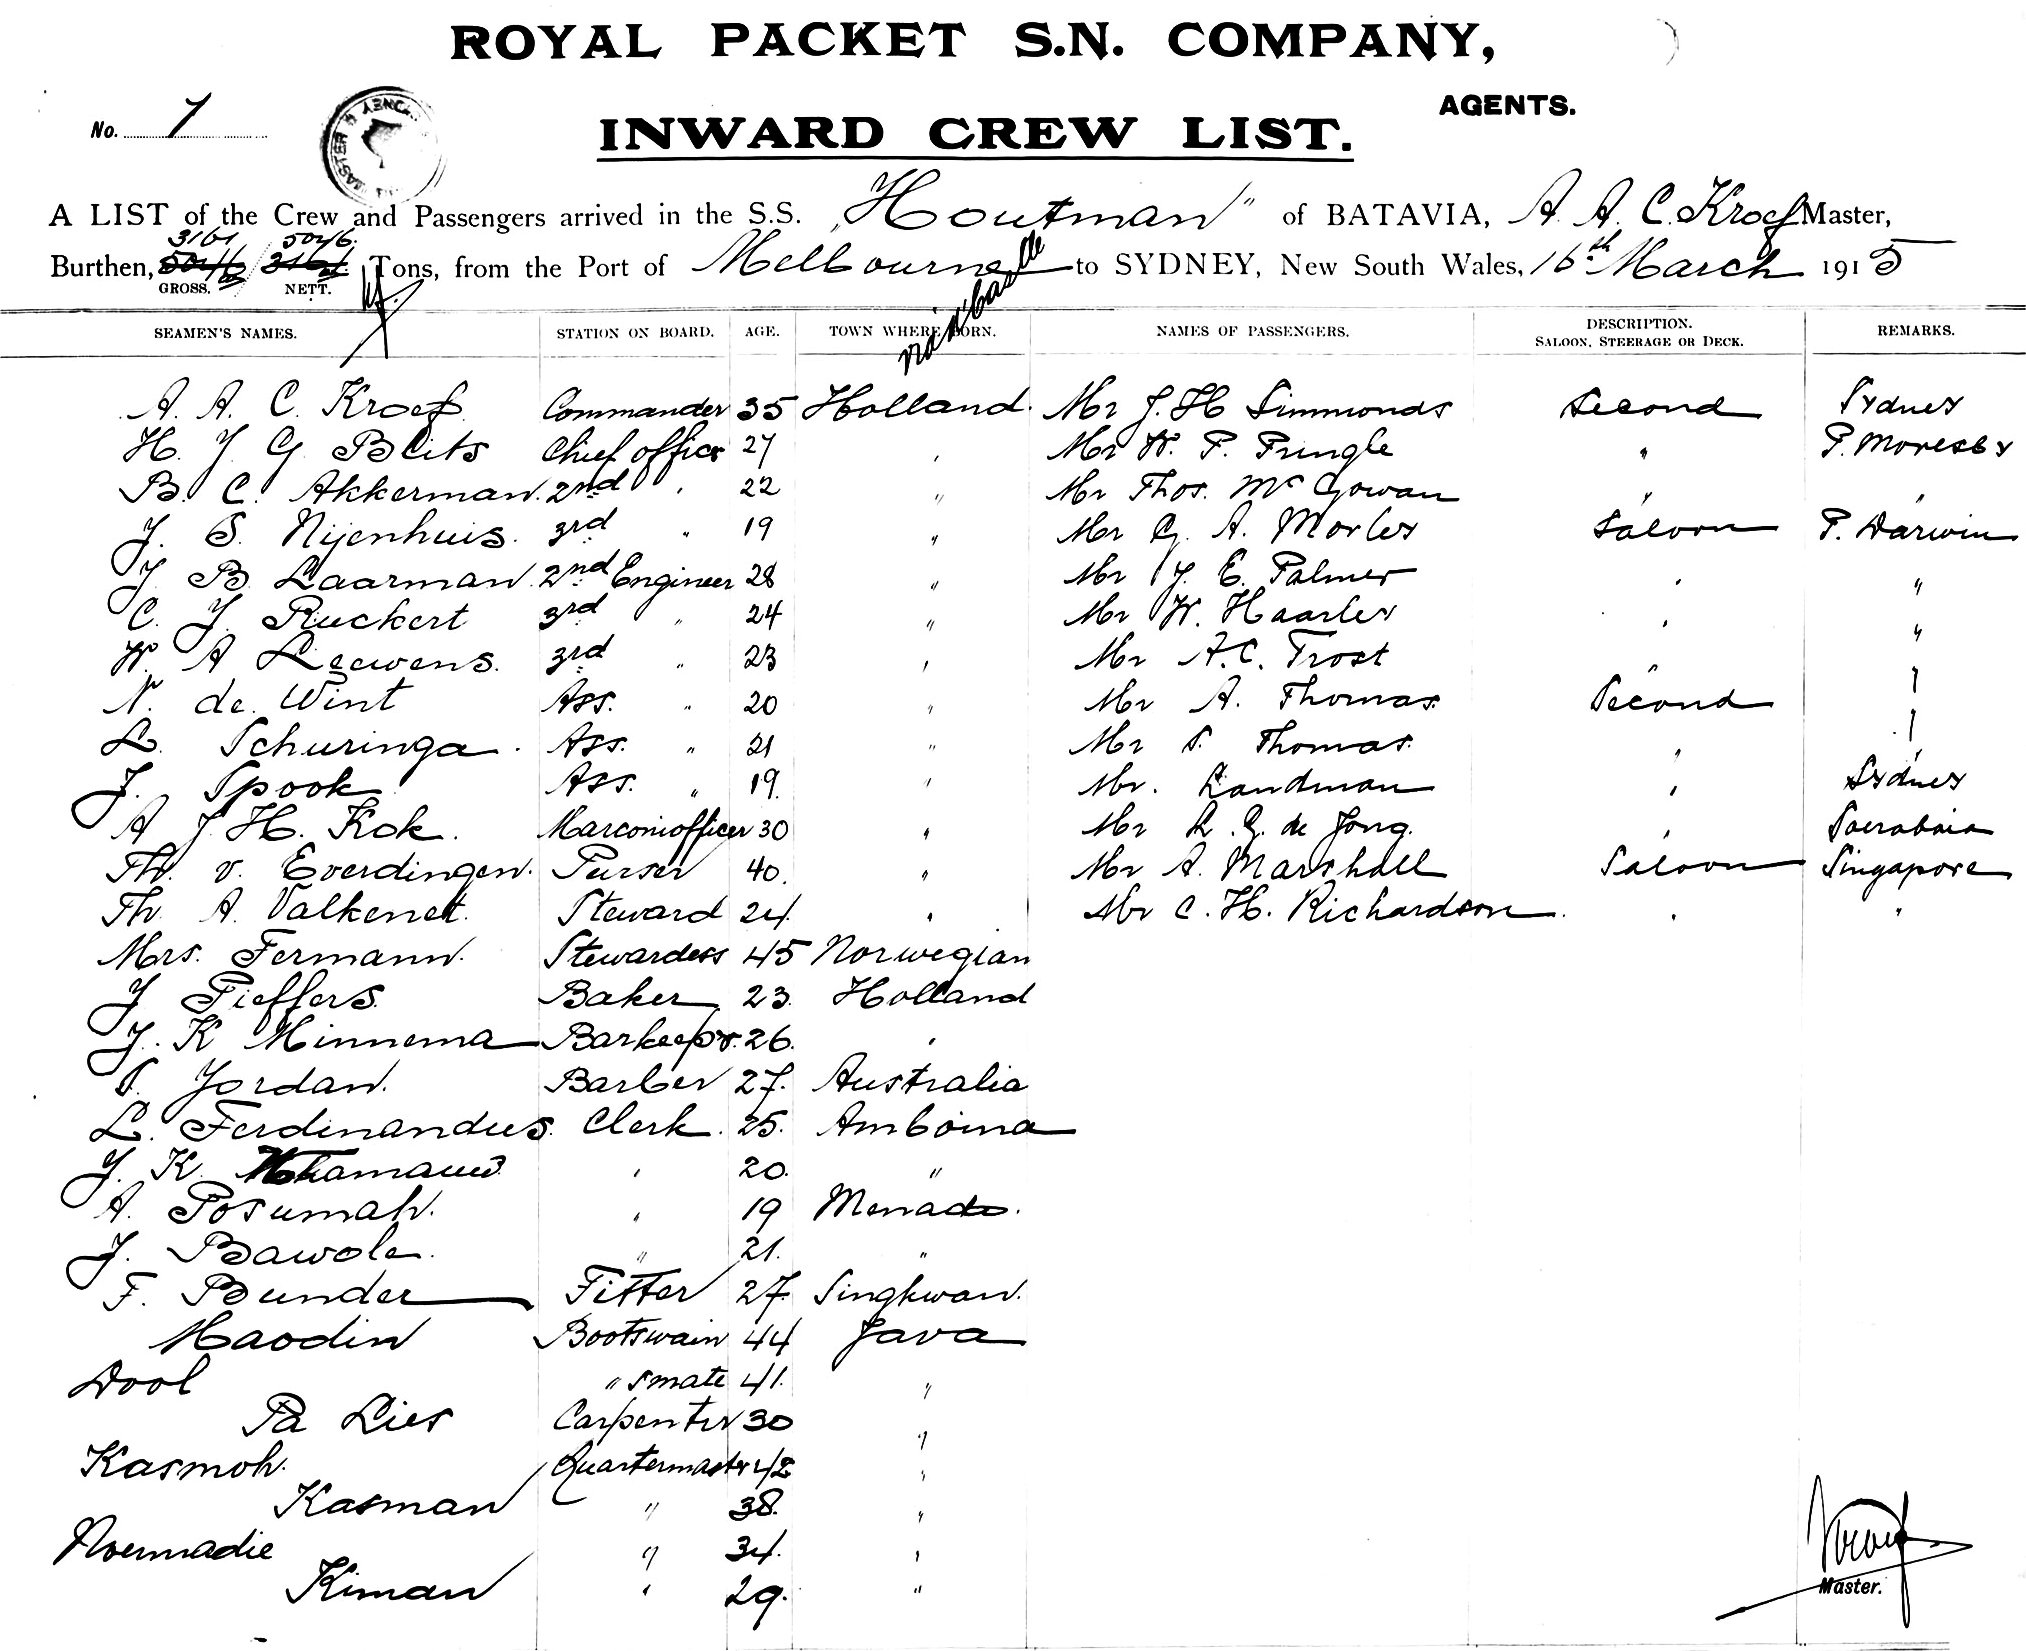 ROYAL PACKET S.N. COMPANY,
AGENTS.
No. 1
INWARD CREW LIST.
A LIST of the Crew and Passengers arrived in the S.S. „Houtman" of BATAVIA, A. A. C. Kroef Master,
3161 5046
Burthen, GROSS. NETT. Tons, from the Port of Melbourne to SYDNEY, New South Wales, 16th March 1915
SEAMEN'S NAMES. STATION ON BOARD. AGE. TOWN WHERE BORN. NAMES OF PASSENGERS. DESCRIPTION. SALOON, STEERAGE OR DECK. REMARKS.
A. A. C. Kroef Commander 35 Holland. Mr J. H Simmonds Second Sydney
H. J. G. Blits Chief officer 27 " Mr W. P. Pringle " P. Moresby
B. C. Akkerman. 2nd " 22 " Mr Thos. McGowan " "
J. S. Nijenhuis. 3rd " 19 " Mr G. A. Morley Saloon P. Darwin
J B. Laarman. 2nd Engineer 28 " Mr J. E. Palmer " "
C. J. Ruckert 3rd " 24 " Mr W. Haarley " "
W. A Leewens. 3rd " 23 " Mr A.C. Trost "
N. de Wint Ass. " 20 " Mr A. Thomas. Second "
L. Schuringa. Ass. " 21 " Mr S. Thomas. " "
J. Spook Ass. " 19. " Mr. Landman " Sydney
A J. H. Kok. Marconiofficer 30 " Mr L. G. de Jong. " Soerabaia
Th. v. Everdingen. Purser 40. " Mr A. Marshall Saloon Singapore
Th. A. Valkenet. Steward 24. " Mr C. H. Richardson. " "
Mrs. Fermann. Stewardess 45 Norwegian
J Pieffers. Baker 23. Holland
J. K Minnema Barkeepr. 26. "
S. Jordan. Barber 27. Australia
L. Ferdinandus. Clerk. 25. Amboina
J. K. " 20. "
A. Posumah. " 19 Menado.
J. Bawole. " 21. "
F. Bunder Fitter 27 Singkwan.
Maodin Bootswain 44 Java
Dool " smate 41. "
Pa Lies Carpenter 30 "
Kasmoh. Quartermaster 42 "
Kasman " 38. "
Noermadie " 34. "
Kiman " 29. "
Master.